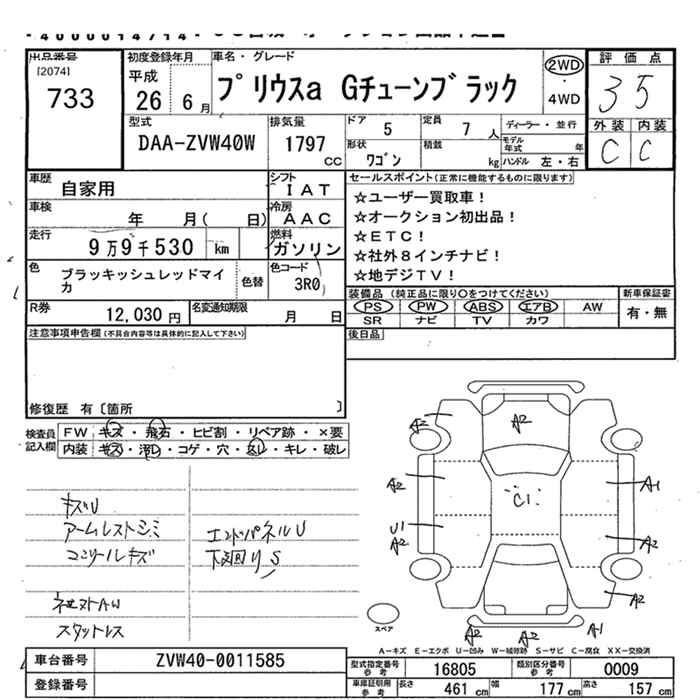 出品番号
[2074]
733
初度登録年月
平成
26 6月
車名・グレード
プリウスa Gチューンブラック
2WD
4WD
評価点
3 5
外装 内装
C C
型式
DAA-ZVW40W
排気量
1797
CC
ドア 5
定員 7人
ディーラー・並行
形状 ワゴン
積載 kg
モデル年式 年
ハンドル 左・右
車歴
自家用
シフト
IAT
車検
年 月( 日)
冷房
AAC
走行
9万9千530 km
燃料
ガソリン
色
ブラッキッシュレッドマイカ
色替
色コード
3R0
R券
12,030円
名変通知期限
月 日
セールスポイント(正常に機能するものに限ります)
☆ユーザー買取車!
☆オークション初出品!
☆ETC!
☆社外8インチナビ!
☆地デジTV!
装備品(純正品に限り○をつけてください)
PS PW ABS エアB AW
SR ナビ TV カワ
新車保証書
有・無
後日品
注意事項申告欄(不具合内容等は具体的に記入して下さい)
修復歴 有〔箇所 〕
検査員記入欄
FW キズ・飛石・ヒビ割・リペア跡・×要
内装 キズ・汚レ・コゲ・穴・スレ・キレ・破レ
キズU
アームレストシミ
コンソールキズ
エンドパネルU
下回りS
社外AW
スタットレス
A2
A2
A2
A1
C1
U1
A2
A2
A2
A2
A2
A1
スペア
A―キズ E―エクボ U―凹み W―補修跡 S―サビ C―腐食 XX―交換済
車台番号 ZVW40-0011585
登録番号
型式指定番号参考 16805
類別区分番号参考 0009
車庫証明用参考
長さ 461cm 幅 177cm 高さ 157cm